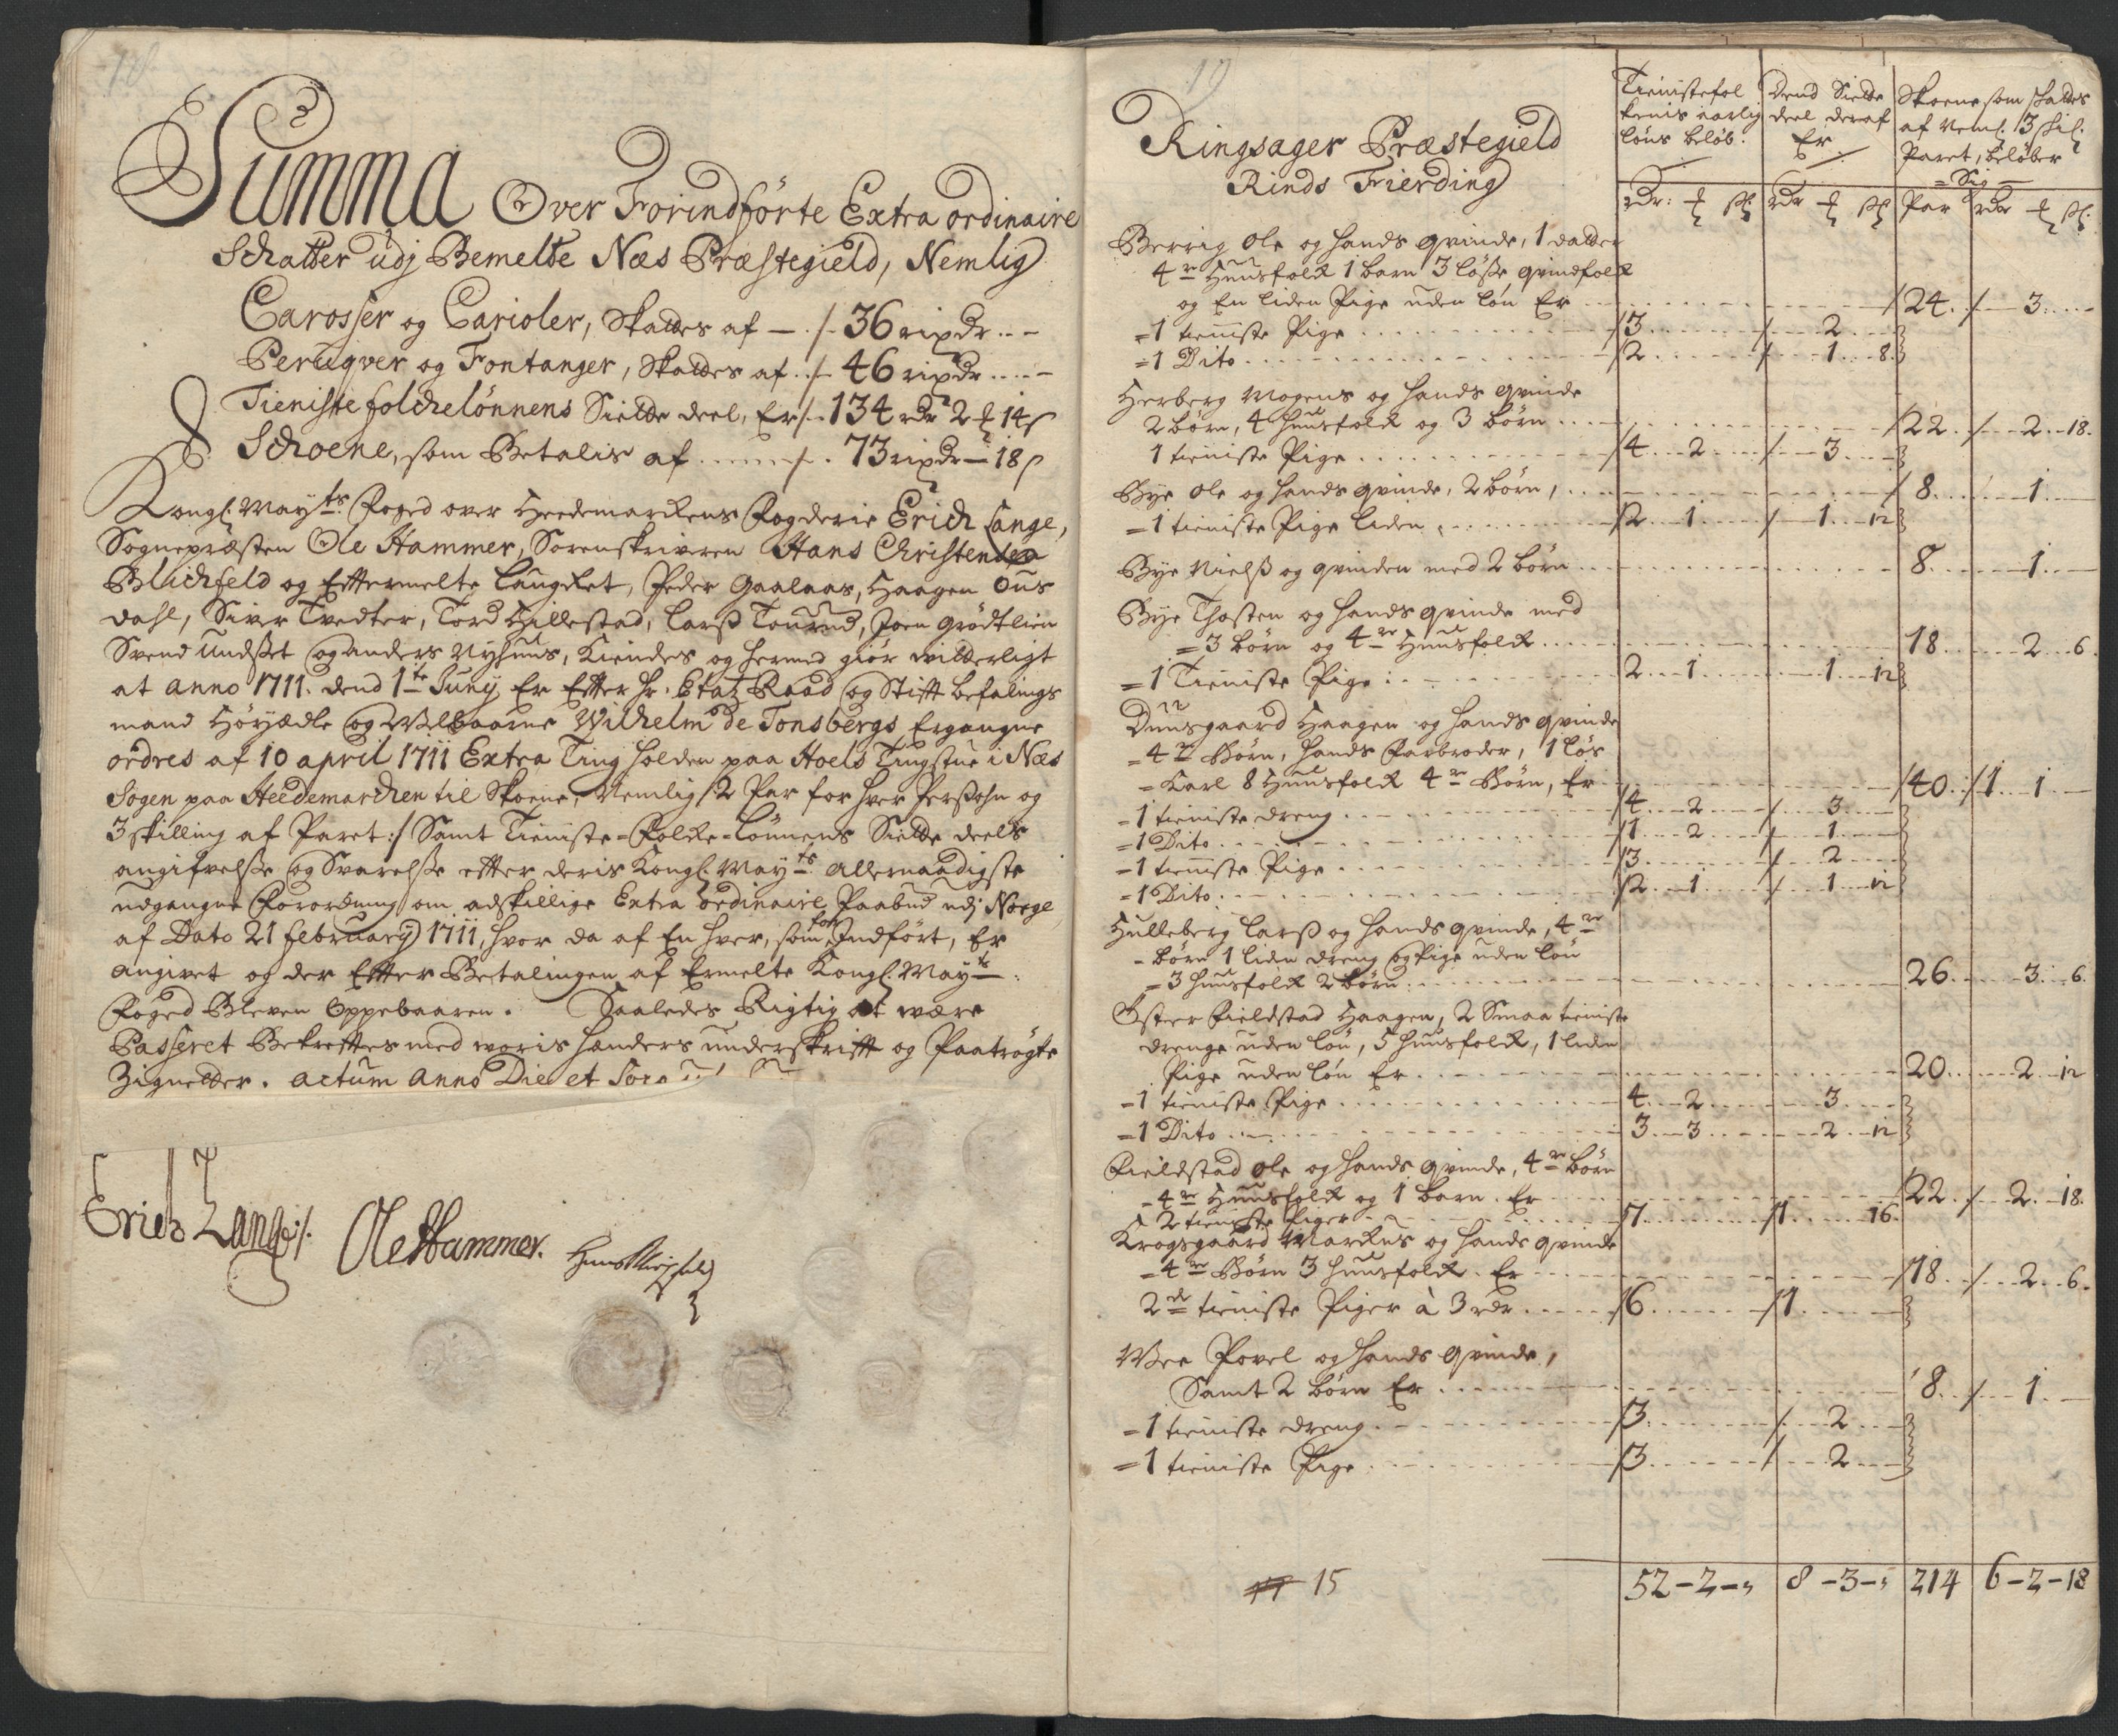 Summa Over Forindførte Extra ordinaire
Schatter udj Bemelte Næs Præstegield, Nemlig
Carosser og Carioler, Skattes af — ./. 36 rixdr ..–
Perugver og Fontanger, Skattes af ../. 46 rixdr ....–
Tieniste folckelønnens Siette deel, Er /. 134 rdr 2 ƒ 14 s
Schoene, som Betalis af ....../. 73 rixdr – 18 s
Kongl. Mayts Foged over Heedemarckens Fogderie Erich Lange,
Sognepræsten Ole Hammer, Sorenskriveren Hans Christensen
Blichfeld og Efftermelte Laugrettet, Peder Gaalaas, Haagen Ous
dahl, Siver Tvedter, Tord Hillestad, Larss Tourud, Joen Grødtlien
Svend Undset og Anders Nyhuus, Kiendes og hermed giør witterligt
at Anno 1711. dend 1te Juny Er Effter Hr. Etatz Raad og Stifft befalings
mand Høyædle og Welbaarne Wilhelm de Tonsbergs Ergangne
ordres af 10 april 1711 Extra Ting holden paa Hoels Tingstue i Næs
Sogen paa Heedemarchen til Skoene, Nemlig /: 2 Par for hver Persohn og
3 skilling af Paret :/ Samt Tieniste-Folke-Lønnens Siette deels
angifvelsse og Svarelsse effter deris Kongl. Mayts Allernaadigste
udgangne Forordning om adskillige Extra ordinaire Paabud udj Norge
af Dato 21 february 1711, hvor da af En hver, som for Indført, Er
angivet og der Effter Betalingen af Ermelte Kongl. Mayts
Foged Bleven Oppebaaren. Saaledes Rigtig at være
Passeret Bekrefftes med woris hænders underskrifft og Paatrøgte
Zignetter. Actum Anno Die et
Erich Lange /.
Ole Hammer.
19
Ringsager Præstegield
Rinds Fierding
Tienistefol
kenis aarlig
løns beløb.
Dend Siette
deel deraf
Er
Skoene som skattes
af Neml: 3 skil.
Paret, beløber
Sig
rdr: ƒ sh rdr ƒ sh Par rdr ƒ sh.
Berrig Ole og hands qvinde, 1 datter
4re Huusfolk 1 barn 3 løsse qvindfolk
og En liden Pige uden løn Er ... 24. /. – 3. –
= 1 tieniste Pige ... 3 ... 2
= 1 Dito ... 2 ... 1 .. 8
Herberg Mogens og hands qvinde
2 børn, 4 huusfolk og 3 børn ... 22. /. 2 .. 18.
1 tieniste Pige ... 4 .. 2 ... 3
Bye Ole og hands qvinde, 2 børn, ... 8 ... 1
= 1 tieniste Pige liden ... 2 .. 1 ... 1 .. 12
Bye Nielss og qvinden med 2 børn ... 8 ... 1
Bye Thosten og hands qvinde med
= 3 børn og 4re Huusfolk ... 18 ... 2 .. 6
= 1 Tieniste Pige ... 2 .. 1 ... 1 .. 12
Duusgaard Haagen og hands qvinde
= 4re Børn, hands Farbroder, 1 løs
– Karl 8 Huusfolk 4re Børn, Er ... 40. /. 1 . 1
– 1 tieniste dreng ... 4 .. 2 ... 3
= 1 Dito ... 1 .. 2 ... 1
– 1 tieniste Pige ... 3 ... 2
= 1 Dito ... 2 .. 1 ... 1 .. 12
Hulleberg Larss og hands qvinde, 4re
– børn 1 liden dreng og Pige uden løn
= 3 huusfolk 2 børn ... 26 ... 3 .. 6.
Øster Fieldstad Haagen, 2 Smaa tieniste
drenge uden løn, 5 huusfolk, 1 liden
Pige uden løn Er ... 20 ... 2 .. 12
– 1 tieniste Pige ... 4 .. 2 ... 3
= 1 Dito ... 3 .. 3 ... 2 .. 12
Fieldstad Ole og hands qvinde, 4re børn
– 4re Huusfolk og 1 barn. Er ... 22. /. 2 .. 18.
2 tieniste Piger ... 7 ... 1 ... 16.
Krogsgaard Markus og hands qvinde
– 4re Børn 3 huusfolk. Er ... 18. /. 2 .. 6.
2de tieniste Piger à 3 rdr ... 6 ... 1
Wee Povel og hands qvinde,
Samt 2 børn Er ... 8. /. 1
= 1 tieniste dreng ... 3 ... 2
= 1 tieniste Pige ... 3 ... 2
15 52 – 2 – „ 8 – 3 – „ 214 6 – 2 – 18